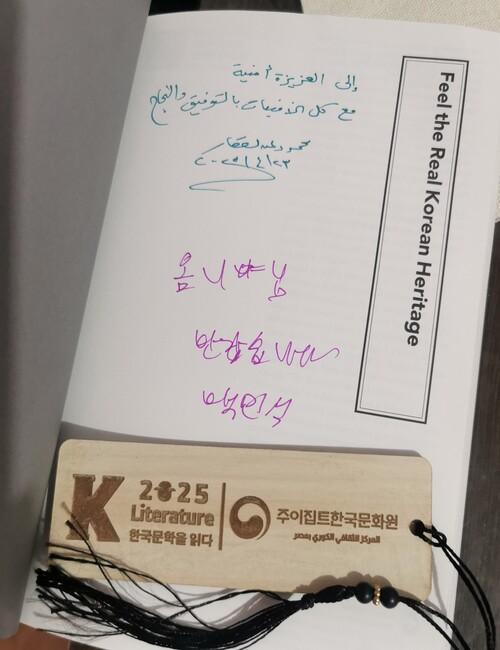 إلى العزيزة أمنية
مع كل الأمنيات بالتوفيق والنجاح
محمود عبد الغفار
٢٠٢٥/٤/٢٣
Feel the Real Korean Heritage
옴니아님
반갑습니다
백민석
K 2025
Literature
한국문학을 읽다
주이집트한국문화원
المركز الثقافي الكوري بمصر